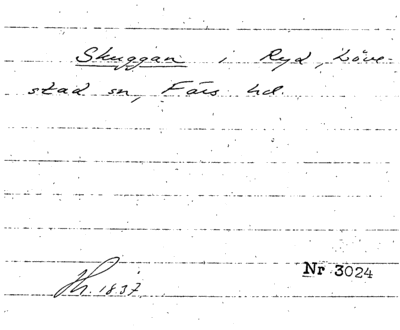 Skuggan i Ryd, Löve-
stad sn, Färs hd.
Nr 3024
h. 1837